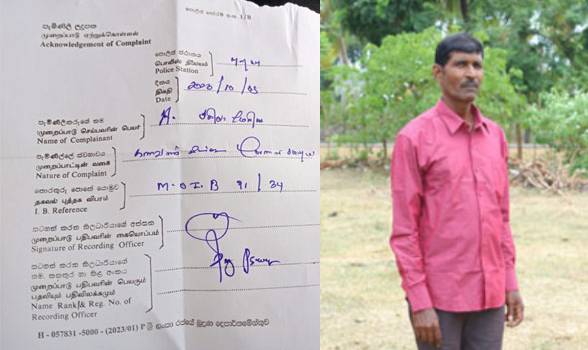 පොලිස් පෝරම අංක 1/B
පැමිණිලි ලදුපත
முறைப்பாடு ஏற்றுக்கொள்ளல்
Acknowledgement of Complaint
පොලිස් ස්ථානය
பொலிஸ் நிலையம்
Police Station
දිනය
திகதி 2023/10/03
Date
පැමිණිලිකරුගේ නම
முறைப்பாடு செய்பவரின் பெயர்
Name of Complainant
පැමිණිල්ලේ ස්වභාවය
முறைப்பாட்டின் வகை
Nature of Complaint
තොරතුරු පොතේ යොමුව
தகவல் புத்தக விபரம் M-OIB 91/34
I. B. Reference
සටහන් කරන නිලධාරියාගේ අත්සන
முறைப்பாடு பதிபவரின் கையொப்பம்
Signature of Recording Officer
සටහන් කරන නිලධාරියාගේ
නම, තනතුර හා රෙ. අංකය
முறைப்பாடு பதிபவரின் பெயரும்
பதவியும் பதிவிலக்கமும்
Name Rank/& Reg. No. of
Recording Officer
H - 057831 -5000 - (2023/01) P ශ්‍රී ලංකා රජයේ මුද්‍රණ දෙපාර්තමේන්තුව